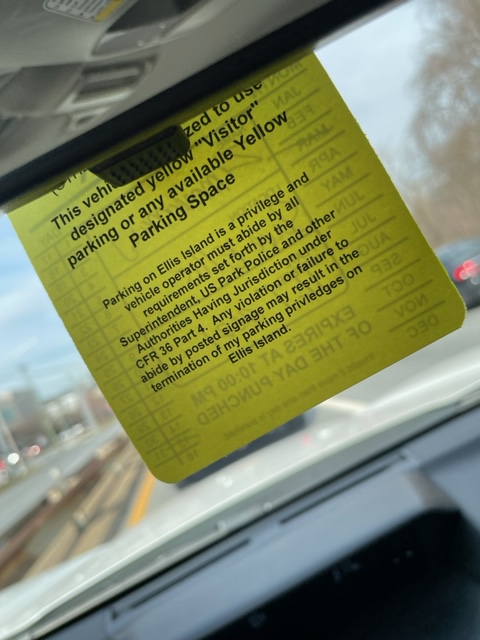 zed to use
This vehi
designated yellow "Visitor"
parking or any available Yellow
Parking Space
Parking on Ellis Island is a privilege and
vehicle operator must abide by all
requirements set forth by the
Superintendent, US Park Police and other
Authorities Having Jurisdiction under
CFR 36 Part 4. Any violation or failure to
abide by posted signage may result in the
termination of my parking priviledges on
Ellis Island.
JAN
FEB
MAR
APR
MAY
JUN
JUL
AUG
SEP
OCT
NOV
DEC
EXPIRES AT 10:00 PM
OF THE DAY PUNCHED